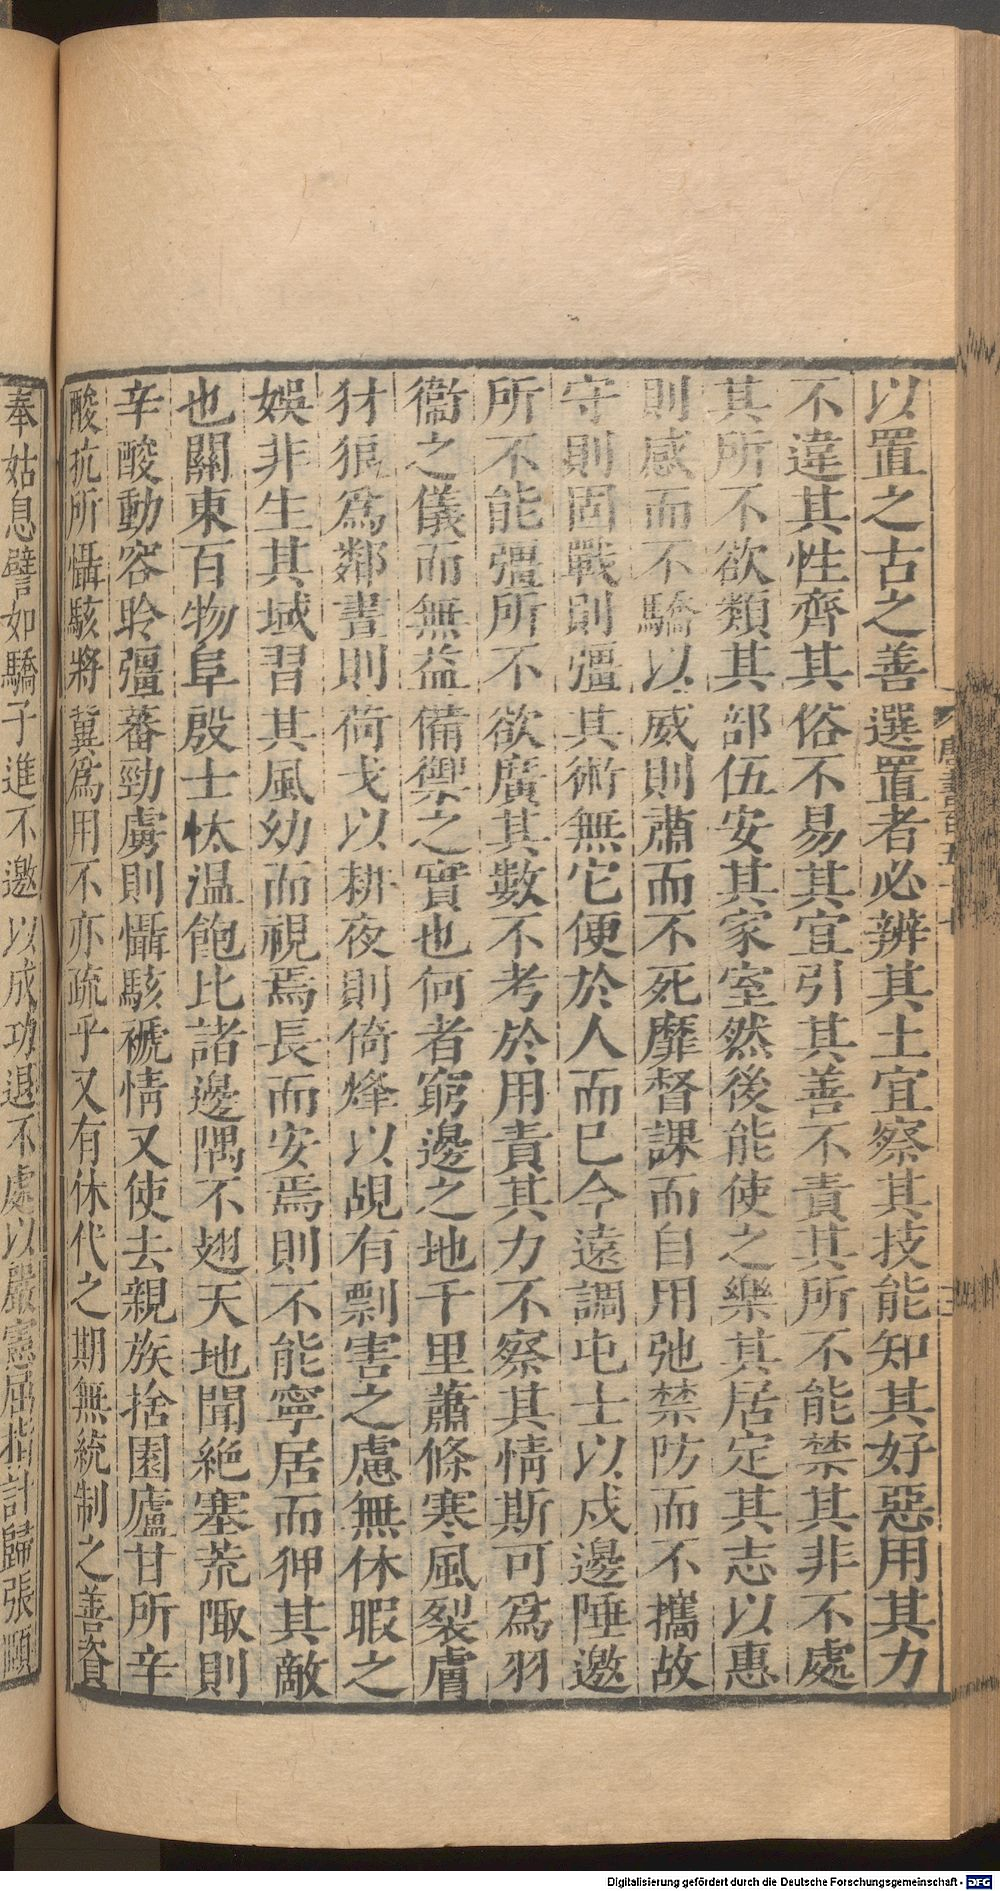 以置之古之善選置者必辨其土宜察其技能知其好惡用其力
不違其性齊其俗不易其宜引其善不責其所不能禁其非不處
其所不欲類其部伍安其家室然後能使之樂其居定其志以惠
則感而不驕以威則肅而不死靡督課而自用弛禁防而不攜故
守則固戰則彊其術無它便於人而已今遠調屯士以戍邊陲邀
所不能彊所不欲廣其數不考於用責其力不察其情斯可爲羽
衞之儀而無益備禦之實也何者窮邊之地千里蕭條寒風裂膚
犲狼爲鄰晝則荷戈以耕夜則倚烽以覘有剽害之慮無休暇之
娛非生其域習其風幼而視焉長而安焉則不能寧居而狎其敵
也關東百物阜殷士忲温飽比諸邊隅不翅天地聞絶塞荒陬則
辛酸動容聆彊蕃勁虜則懾駭褫情又使去親族捨園廬甘所辛
酸抗所懾駭將冀爲用不亦疏乎又有休代之期無統制之善資
奉姑息譬如驕子進不邀以成功退不處以嚴憲屈指計歸張頤
Digitalisierung gefördert durch die Deutsche Forschungsgemeinschaft - DFG